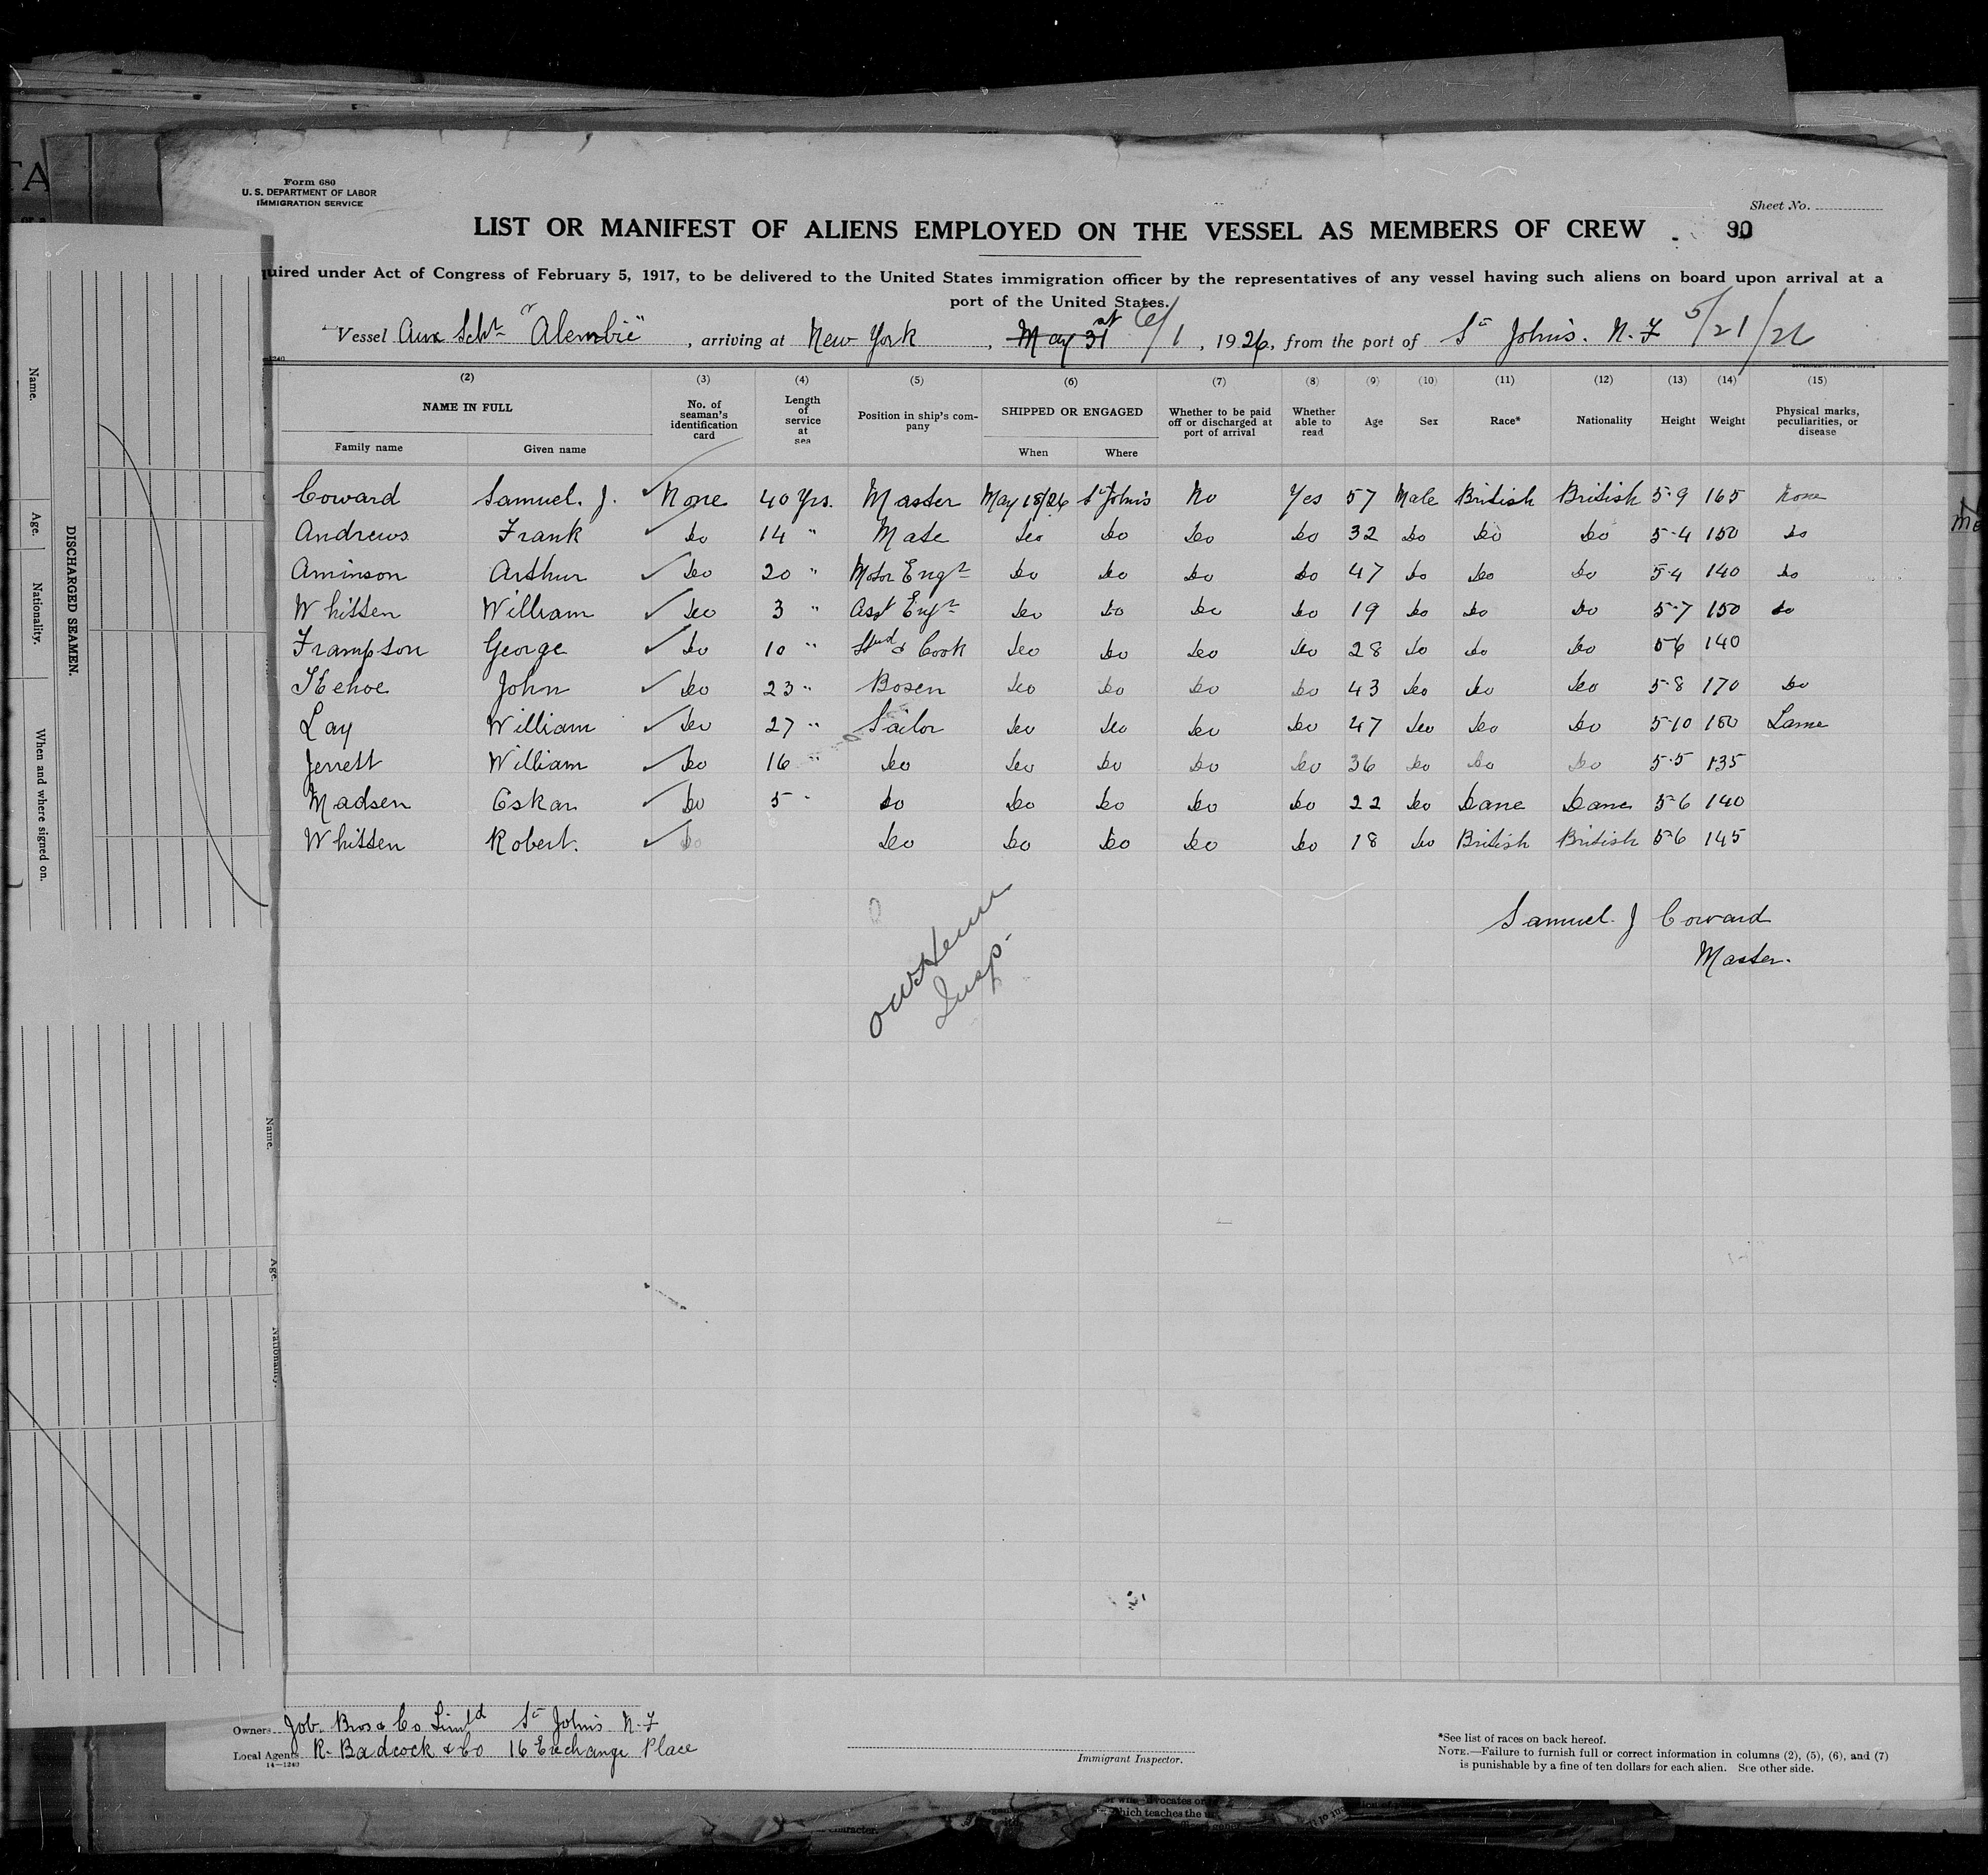 Form 680
U. S. DEPARTMENT OF LABOR
IMMIGRATION SERVICE
Sheet No.
LIST OR MANIFEST OF ALIENS EMPLOYED ON THE VESSEL AS MEMBERS OF CREW 90
uired under Act of Congress of February 5, 1917, to be delivered to the United States immigration officer by the representatives of any vessel having such aliens on board upon arrival at a
port of the United States.
Vessel Aux Schr "Alembic", arriving at New York, May 31st 6/1, 1926, from the port of St Johns. N.F 5/21/26
(2) (3) (4) (5) (6) (7) (8) (9) (10) (11) (12) (13) (14) (15)
NAME IN FULL No. of seaman's identification card Length of service at sea Position in ship's company SHIPPED OR ENGAGED Whether to be paid off or discharged at port of arrival Whether able to read Age Sex Race* Nationality Height Weight Physical marks, peculiarities, or disease
Family name Given name When Where
Coward Samuel. J. None 40 Yrs. Master May 18/26 St Johns No Yes 57 Male British British 5-9 165 None
Andrews Frank do 14 " Mate do do do do 32 do do do 5-4 150 do
Aminson Arthur do 20 " Motor Engr do do do do 47 do do do 5-4 140 do
Whitten William do 3 " Asst Engr do do do do 19 do do do 5-7 150 do
Frampton George do 10 " Stud & Cook do do do do 28 do do do 5 6 140
Kehoe John do 23 " Bosen do do do do 43 do do do 5-8 170 do
Lay William do 27 " Sailor do do do do 47 do do do 5-10 180 Lame
Jerrett William do 16 " do do do do do 36 do do do 5-5 135
Madsen Oskar do 5 " do do do do do 22 do Dane Dane 5-6 140
Whitten Robert. do do do do do do 18 do British British 5-6 145
Samuel. J Coward
Master.
Insp.
Owners Job. Bros & Co Limtd St Johns N.F
Local Agents R. Badcock & Co 16 Exchange Place
14—1240
Immigrant Inspector.
*See list of races on back hereof.
NOTE.—Failure to furnish full or correct information in columns (2), (5), (6), and (7)
is punishable by a fine of ten dollars for each alien. See other side.
DISCHARGED SEAMEN.
Name.
Age.
Nationality.
When and where signed on.
Name.
Age.
Nationality.